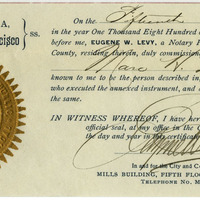 A,
ncisco } ss.
On the Fifteenth
in the year One Thousand Eight Hundred a
before me, EUGENE W. LEVY, a Notary P
County, residing therein, duly commissio
known to me to be the person described in
who executed the annexed instrument, and
the same.
IN WITNESS WHEREOF, I have here
official seal, at my office in the C
the day and year in this certificat
In and for the City and Co
MILLS BUILDING, FIFTH FLOO
TELEPHONE No. M